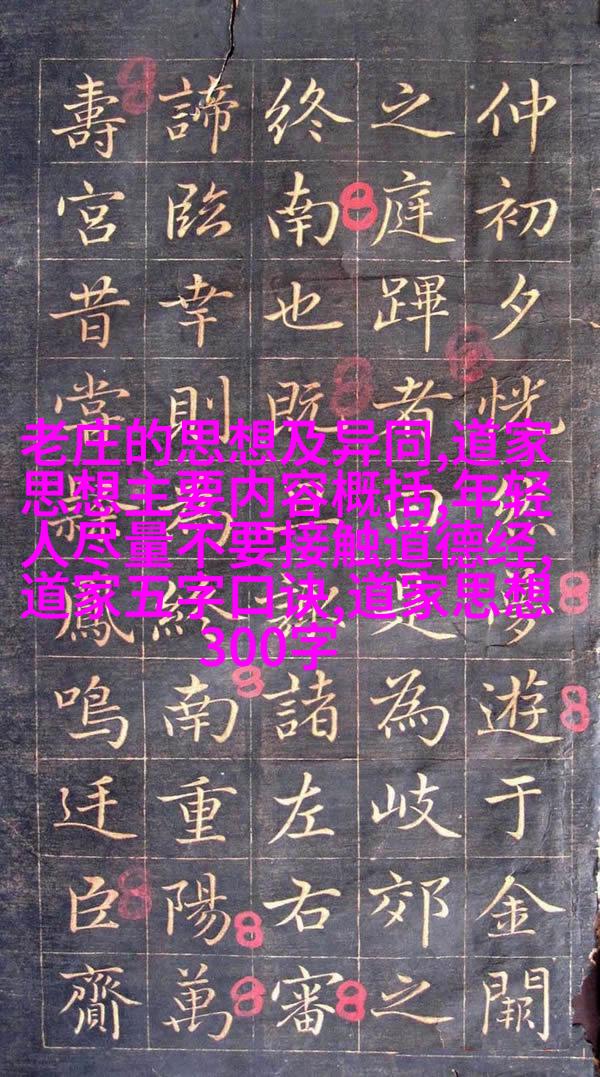 仲初夕恍遊于金闕
之庭蹕者由是為岐郊之
終南也既諸左右審
諦臨幸則為終南重陽萬
壽宮昔鳳鳴廷臣齎
老庄的思想及异同,道家
思想主要内容概括,年轻
人尽量不要接触道德经,
道家五字口诀,道家思想
300字